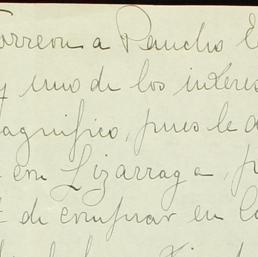 Torreon a Pancho
y uno de los interes
agnifico, pues le d
con Lizarraga, p
de comprar en la